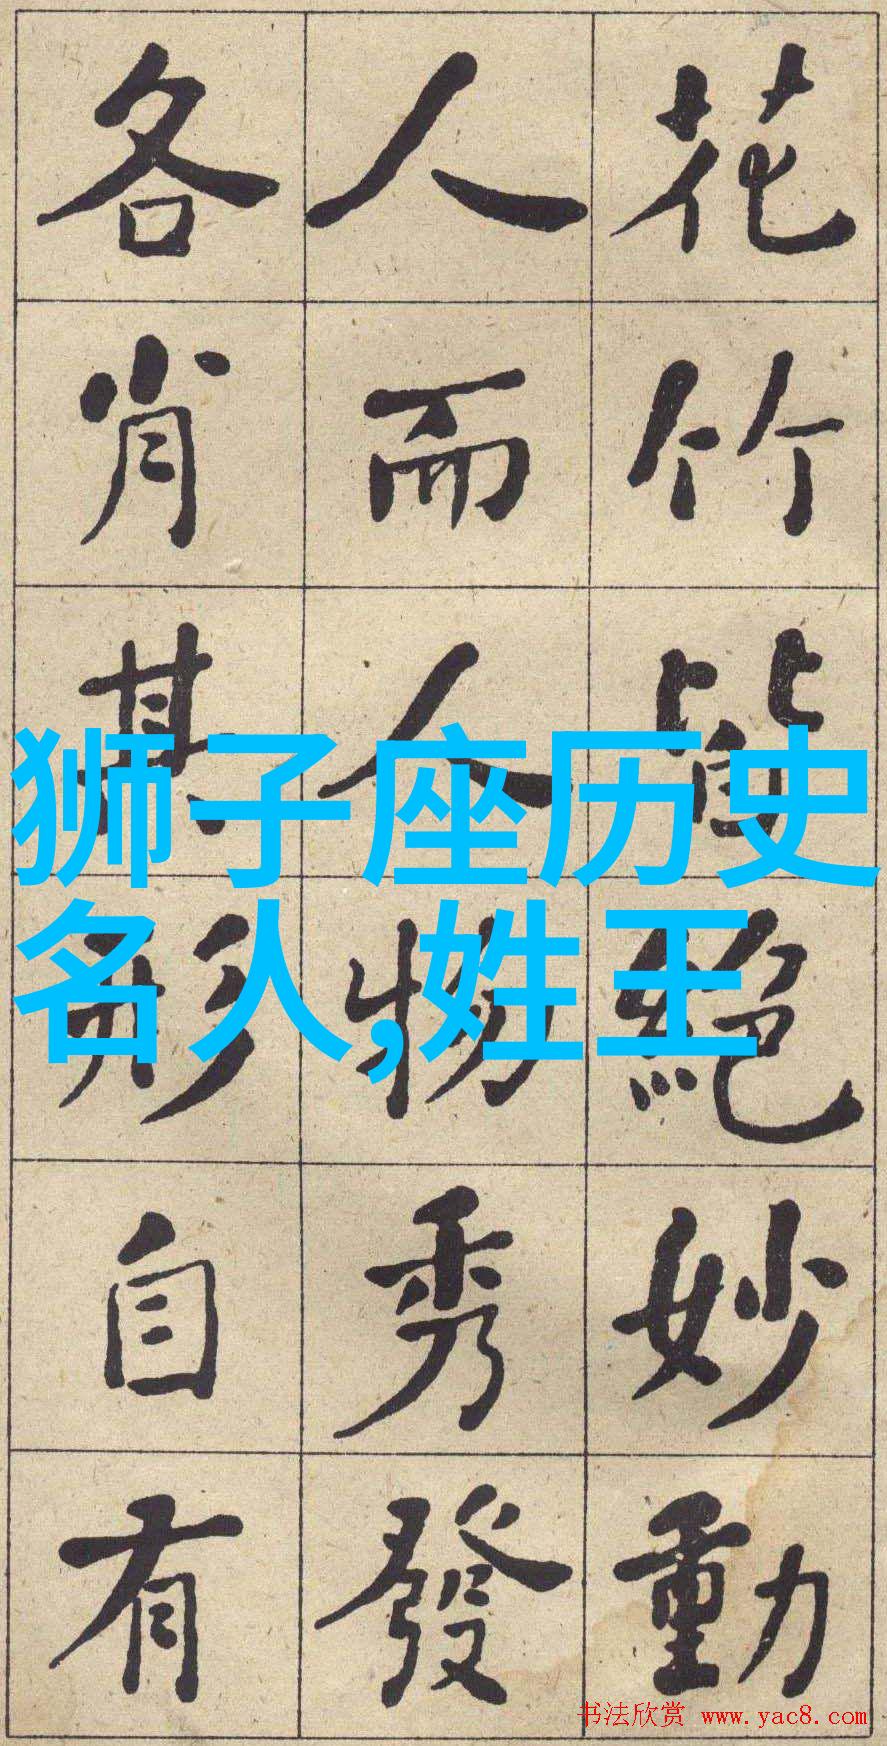 花竹皆絕妙動
人而人物秀發
各肖其形自有
狮子座历史
名人,姓王
书法欣赏 www.yac8.com